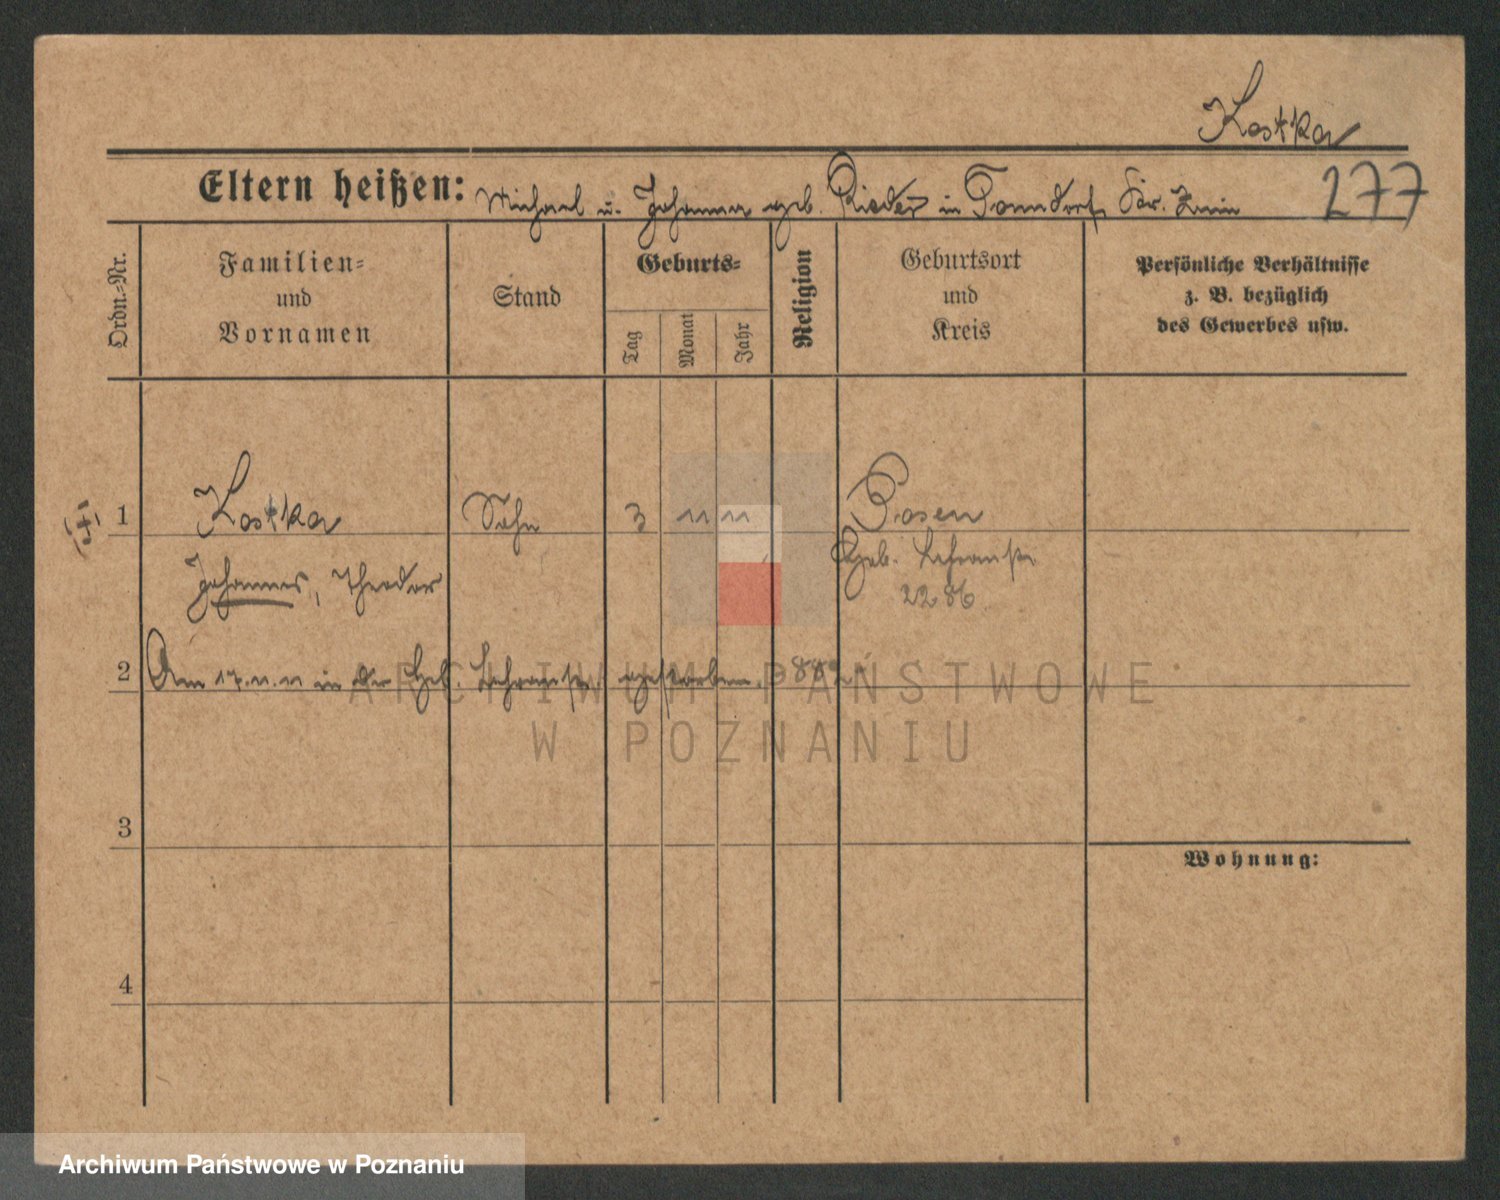 Kostka
Eltern heißen: Michael u. Johanna geb. Rieder in Tonndorf, Kr. Znin 277
Ordn.-Nr.
Familien-
und
Vornamen
Stand
Geburts-
Tag
Monat
Jahr
Religion
Geburtsort
und
Kreis
Persönliche Verhältnisse
z. B. bezüglich
des Gewerbes usw.
1 Kostka Sohn 3 11 11 Posen
Johannes, Theodor
Geb. Lehranst.
2286
2 Am 17.11.11 in der Heb. Lehranst. gestorben.
3
Wohnung:
4
ARCHIWUM PAŃSTWOWE
W POZNANIU
Archiwum Państwowe w Poznaniu